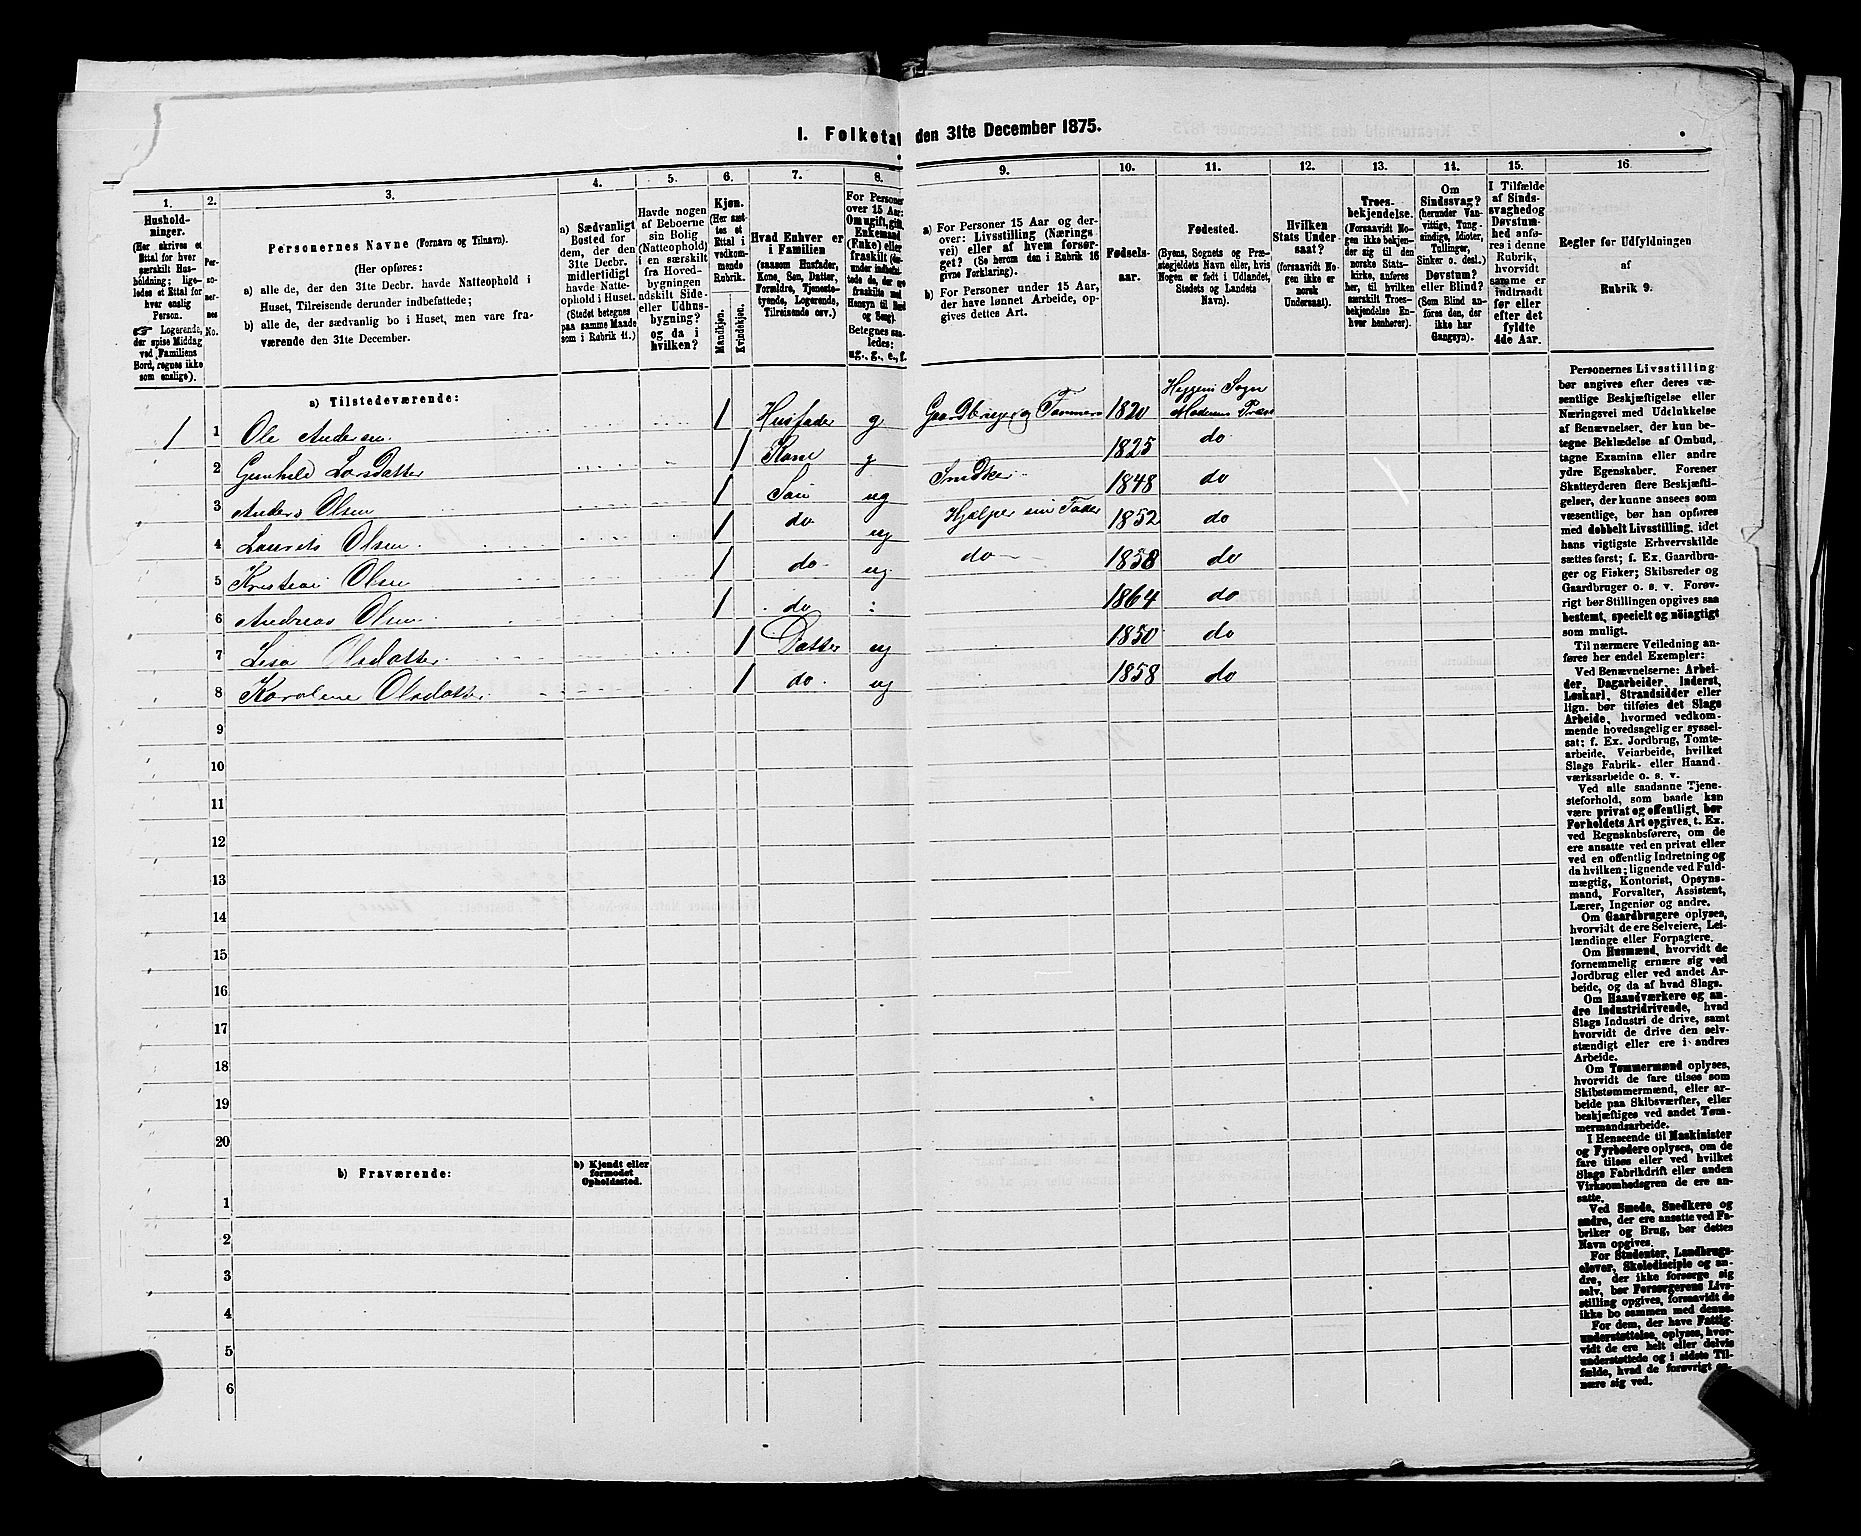 I. Folketæ den 31te December 1875.
1. 2. 3. 4. 5. 6. 7. 8. 9. 10. 11. 12. 13. 14. 15. 16
Hushold-
ninger.
(Her skrives et
Ettal for hver
særskilt Hus-
holdning; lige-
ledes et Ettal for
hver enslig
Person.
☞ Logerende,
der spise Middag
ved Familiens
Bord, regnes ikke
som enslige).
Per-
so-
ner-
nes
No.
Personernes Navne (Fornavn og Tilnavn).
(Her opføres:
a) alle de, der den 31te Decbr. havde Natteophold i
Huset, Tilreisende derunder indbefattede;
b) alle de, der sædvanlig bo i Huset, men vare fra-
værende den 31te December.
a) Sædvanligt
Bosted for
dem, der den
31te Decbr.
midlertidigt
havde Natte-
ophold i Huset.
(Stedet betegnes
paa samme Maade
som i Rubrik 11.)
Havde nogen
af Beboerne
sin Bolig
(Natteophold)
i en særskilt
fra Hoved-
bygningen
adskilt Side-
eller Udhus-
bygning?
og da i
hvilken?
Kjøn.
(Her sæt-
tes et
Ettal i
vedkom-
mende
Rubrik.
Mandkjøn.
Kvindekjøn.
Hvad Enhver er
i Familien
(saasom Husfader,
Kone, Søn, Datter,
Forældre, Tjeneste-
tyende, Logerende,
Tilreisende osv.)
For Personer
over 15 Aar:
Om ugift, gift,
Enkemand
(Enke) eller
fraskilt
Betegnes saa-
ledes:
ug., g., e., f.
a) For Personer 15 Aar og der-
over: Livsstilling (Nærings-
vei) eller af hvem forsør-
get? (Se herom den i Rubrik 16
givne Forklaring).
b) For Personer under 15 Aar,
der have lønnet Arbeide, op-
gives dettes Art.
Fødsels-
aar.
Fødested.
(Byens, Sognets og Præ-
stegjeldets Navn eller, hvis
Nogen er født i Udlandet,
Stedets og Landets
Navn).
Hvilken
Stats Under-
saat?
(forsaavidt No-
gen ikke er
norsk
Undersaat).
Troes-
bekjendelse.
(Forsaavidt No-
gen ikke bekjen-
der sig til den
norske Stats-
kirke, anføres
her, til hvilken
særskilt Troes-
bekjendelse En-
hver henhører).
Om
Sindssvag?
(herunder Van-
vittige, Tung-
sindige, Idioter,
Tullinger,
Sinker o. desl.)
Døvstum?
eller Blind?
(Som Blind an-
føres den, der
ikke har
Gangsyn).
I Tilfælde
af Sinds-
svaghed og
Døvstum-
hed anfø-
res i denne
Rubrik,
hvorvidt
samme er
indtraadt
før eller
efter det
fyldte
4de Aar.
Regler for Udfyldningen
af
Rubrik 9.
a) Tilstedeværende:
1 1 Ole Andersen 1 Husfader g Gaardbruger og Tømmer 1820 Heggens Sogn Modums Præst
2 Gunhild Larsdatter 1 Kone g 1825 do
3 Anders Olsen 1 Søn ug Snedker 1848 do
4 Laurits Olsen 1 do ug Hjælper sin Fader 1852 do
5 Kristian Olsen 1 do ug do 1858 do
6 Andreas Olsen 1 do : 1864 do
7 Lisa Olsdatter 1 Datter ug 1850 do
8 Karoline Olsdatter 1 do ug 1858 do
9
10
11
12
13
14
15
16
17
18
19
20
b) Fraværende: b) Kjendt eller
formodet
Opholdssted.
1
2
3
4
5
6
Personernes Livsstilling
bør angives efter deres væ-
sentlige Beskjæftigelse eller
Næringsvei med Udelukkelse
af Benævnelser, der kun be-
tegne Beklædelse af Ombud,
tagne Examina eller andre
ydre Egenskaber. Forener
Skatteyderen flere Beskjæfti-
gelser, der kunne ansees som
væsentlige, bør han opføres
med dobbelt Livsstilling, idet
hans vigtigste Erhvervskilde
sættes først; f. Ex. Gaardbru-
ger og Fisker; Skibsreder og
Gaardbruger o. s. v. Forøv-
rigt bør Stillingen opgives saa
bestemt, specielt og nøiagtigt
som muligt.
Til nærmere Veiledning an-
føres her endel Exempler:
Ved Benævnelserne: Arbei-
der, Dagarbeider, Inderst,
Løskarl, Strandsidder eller
lign. bør tilføies det Slags
Arbeide, hvormed vedkom-
mende hovedsagelig er syssel-
sat; f. Ex. Jordbrug, Tomte-
arbeide, Veiarbeide, hvilket
Slags Fabrik- eller Haand-
værksarbeide o. s. v.
Ved alle saadanne Tjene-
steforhold, som baade kan
være privat og offentligt, bør
Forholdets Art opgives, t. Ex.
ved Regnskabsførere, om de
ere ansatte ved en privat eller
ved en offentlig Indretning og
da hvilken; lignende ved Fuld-
mægtig, Kontorist, Opsyns-
mand, Forvalter, Assistent,
Lærer, Ingeniør og andre.
Om Gaardbrugere oplyses,
hvorvidt de ere Selveiere, Lei-
lændinge eller Forpagtere.
Om Husmænd, hvorvidt de
fornemmelig ernære sig ved
Jordbrug eller ved andet Ar-
beide, og da af hvad Slags.
Om Haandværkere og an-
dre Industridrivende, hvad
Slags Industri de drive, samt
hvorvidt de drive den selv-
stændigt eller ere i andres
Arbeide.
Om Tømmermænd oplyses,
hvorvidt de fare tilsøs som
Skibstømmermænd, eller ar-
beide paa Skibsværfter, eller
beskjæftiges ved andet Tøm-
mermandsarbeide.
I Henseende til Maskinister
og Fyrbødere oplyses, om de
fare tilsøs eller ved hvilket
Slags Fabrikdrift eller anden
Virksomhedsgren de ere an-
satte.
Ved Smede, Snedkere og
andre, der ere ansatte ved Fa-
briker og Brug, bør dettes
Navn opgives.
For Studenter, Landbrugs-
elever, Skoledisciple og an-
dre, der ikke forsørge sig
selv, bør Forsørgerens Livs-
stilling opgives, forsaavidt de
ikke bo sammen med denne.
For dem, der have Fattig-
understøttelse, oplyses, hvor-
vidt de ere helt eller delvis
understøttede og i sidste Til-
fælde, hvad de forøvrigt er-
nære sig ved.